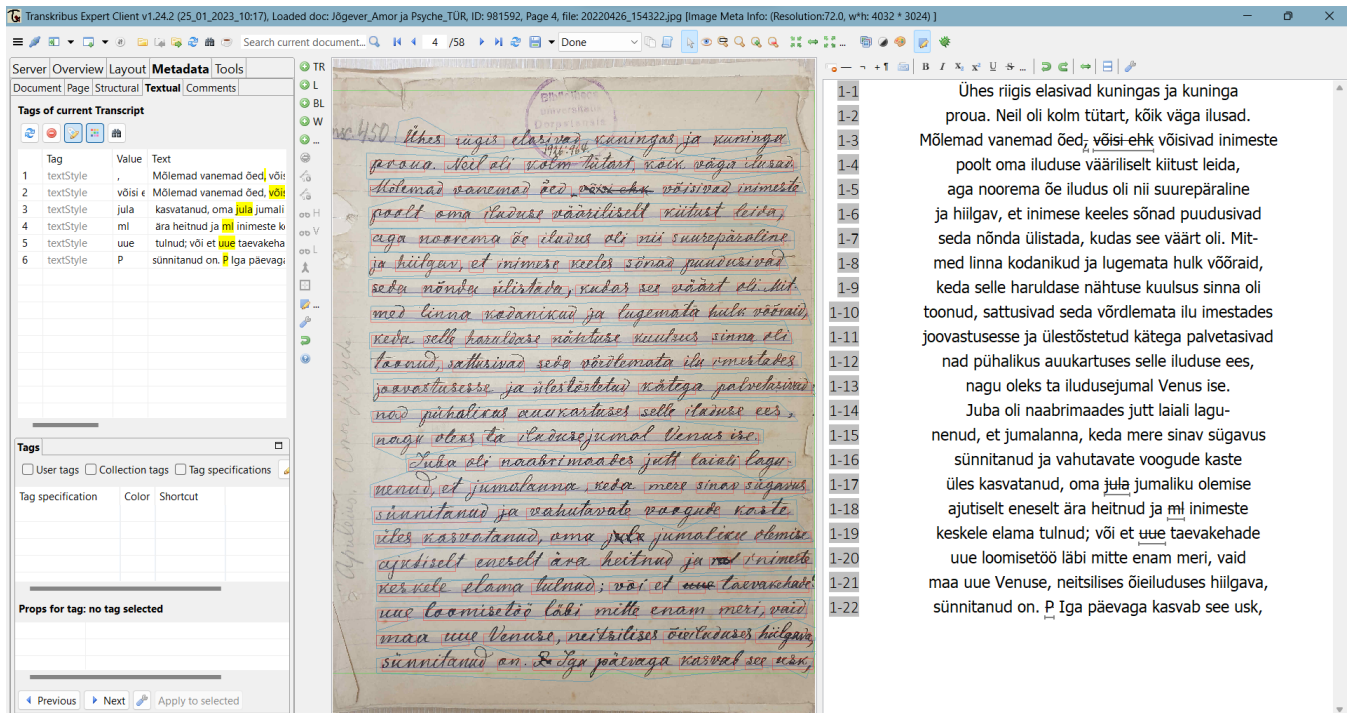 Transkribus Expert Client v1.24.2 (25_01_2023_10:17), Loaded doc: Jõgever_Amor ja Psyche_TÜR, ID: 981592, Page 4, file: 20220426_154322.jpg [Image Meta Info: (Resolution:72.0, w*h: 4032 * 3024) ]
Search current document...
4 /58
Done
Server Overview Layout Metadata Tools
Document Page Structural Textual Comments
Tags of current Transcript
Tag Value Text
1 textStyle , Mõlemad vanemad õed, võis
2 textStyle võisi e Mõlemad vanemad õed, võis
3 textStyle jula kasvatanud, oma jula jumali
4 textStyle ml ära heitnud ja ml inimeste k
5 textStyle uue tulnud; või et uue taevakeha
6 textStyle P sünnitanud on. P Iga päevaga
Tags
User tags Collection tags Tag specifications
Tag specification Color Shortcut
Props for tag: no tag selected
Previous Next Apply to selected
TR
L
BL
W
...
H
V
L
...
Bibliotheca
Universitatis
Dorpatensis
450
Ühes riigis elasivad kuningas ja kuninga
1926:464.
proua. Neil oli kolm tütart, kõik väga ilusad.
Mõlemad vanemad õed, võisi ehk võisivad inimeste
poolt oma iluduse vääriliselt kiitust leida,
aga noorema õe iludus oli nii suurepäraline
ja hiilgav, et inimese keeles sõnad puudusivad
seda nõnda ülistada, kudas see väärt oli. Mit-
med linna kodanikud ja lugemata hulk võõraid,
keda selle haruldase nähtuse kuulsus sinna oli
toonud, sattusivad seda võrdlemata ilu imestades
joovastusesse ja ülestõstetud kätega palvetasivad
nad pühalikus auukartuses selle iluduse ees,
nagu oleks ta iludusejumal Venus ise.
Juba oli naabrimaades jutt laiali lagu-
nenud, et jumalanna, keda mere sinav sügavus
sünnitanud ja vahutavate voogude kaste
üles kasvatanud, oma jula jumaliku olemise
ajutiselt eneselt ära heitnud ja ml inimeste
keskele elama tulnud; või et uue taevakehade
uue loomisetöö läbi mitte enam meri, vaid
maa uue Venuse, neitsilises õieiluduses hiilgava,
sünnitanud on. P Iga päevaga kasvab see usk,
Apulejus. Amor ja Psyche
B I X₁ x² U S ...
1-1 Ühes riigis elasivad kuningas ja kuninga
1-2 proua. Neil oli kolm tütart, kõik väga ilusad.
1-3 Mõlemad vanemad õed, võisi ehk võisivad inimeste
1-4 poolt oma iluduse vääriliselt kiitust leida,
1-5 aga noorema õe iludus oli nii suurepäraline
1-6 ja hiilgav, et inimese keeles sõnad puudusivad
1-7 seda nõnda ülistada, kudas see väärt oli. Mit-
1-8 med linna kodanikud ja lugemata hulk võõraid,
1-9 keda selle haruldase nähtuse kuulsus sinna oli
1-10 toonud, sattusivad seda võrdlemata ilu imestades
1-11 joovastusesse ja ülestõstetud kätega palvetasivad
1-12 nad pühalikus auukartuses selle iluduse ees,
1-13 nagu oleks ta iludusejumal Venus ise.
1-14 Juba oli naabrimaades jutt laiali lagu-
1-15 nenud, et jumalanna, keda mere sinav sügavus
1-16 sünnitanud ja vahutavate voogude kaste
1-17 üles kasvatanud, oma jula jumaliku olemise
1-18 ajutiselt eneselt ära heitnud ja ml inimeste
1-19 keskele elama tulnud; või et uue taevakehade
1-20 uue loomisetöö läbi mitte enam meri, vaid
1-21 maa uue Venuse, neitsilises õieiluduses hiilgava,
1-22 sünnitanud on. P Iga päevaga kasvab see usk,